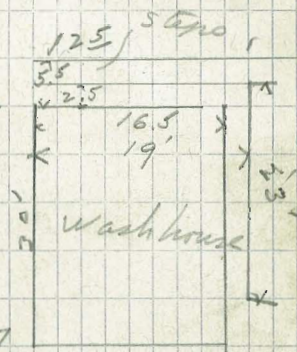 steps
125
5.5
2.5
16.5
19'
23'
30'
Washhouse